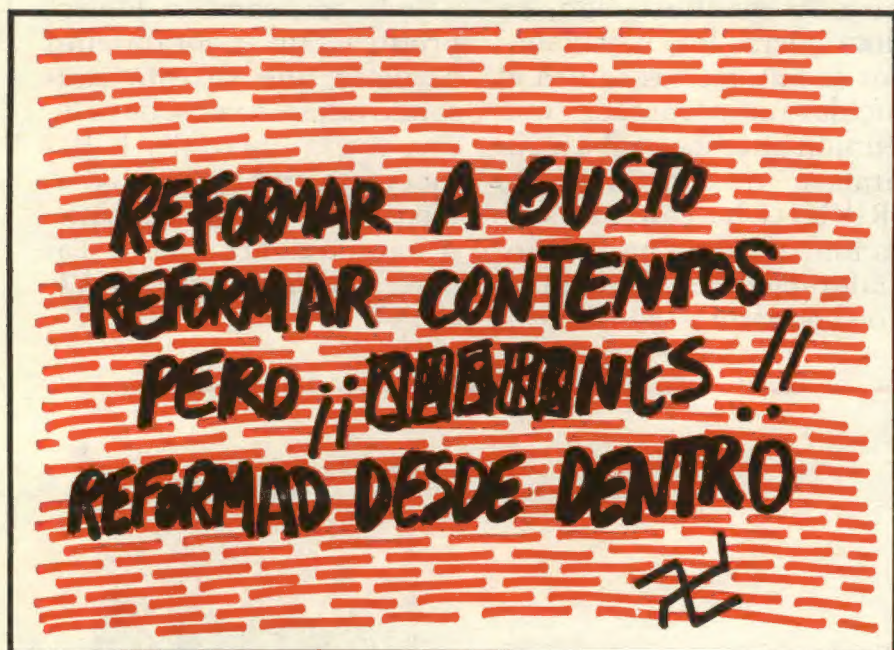 REFORMAR A GUSTO
REFORMAR CONTENTOS
PERO ¡¡ NES !!
REFORMAD DESDE DENTRO